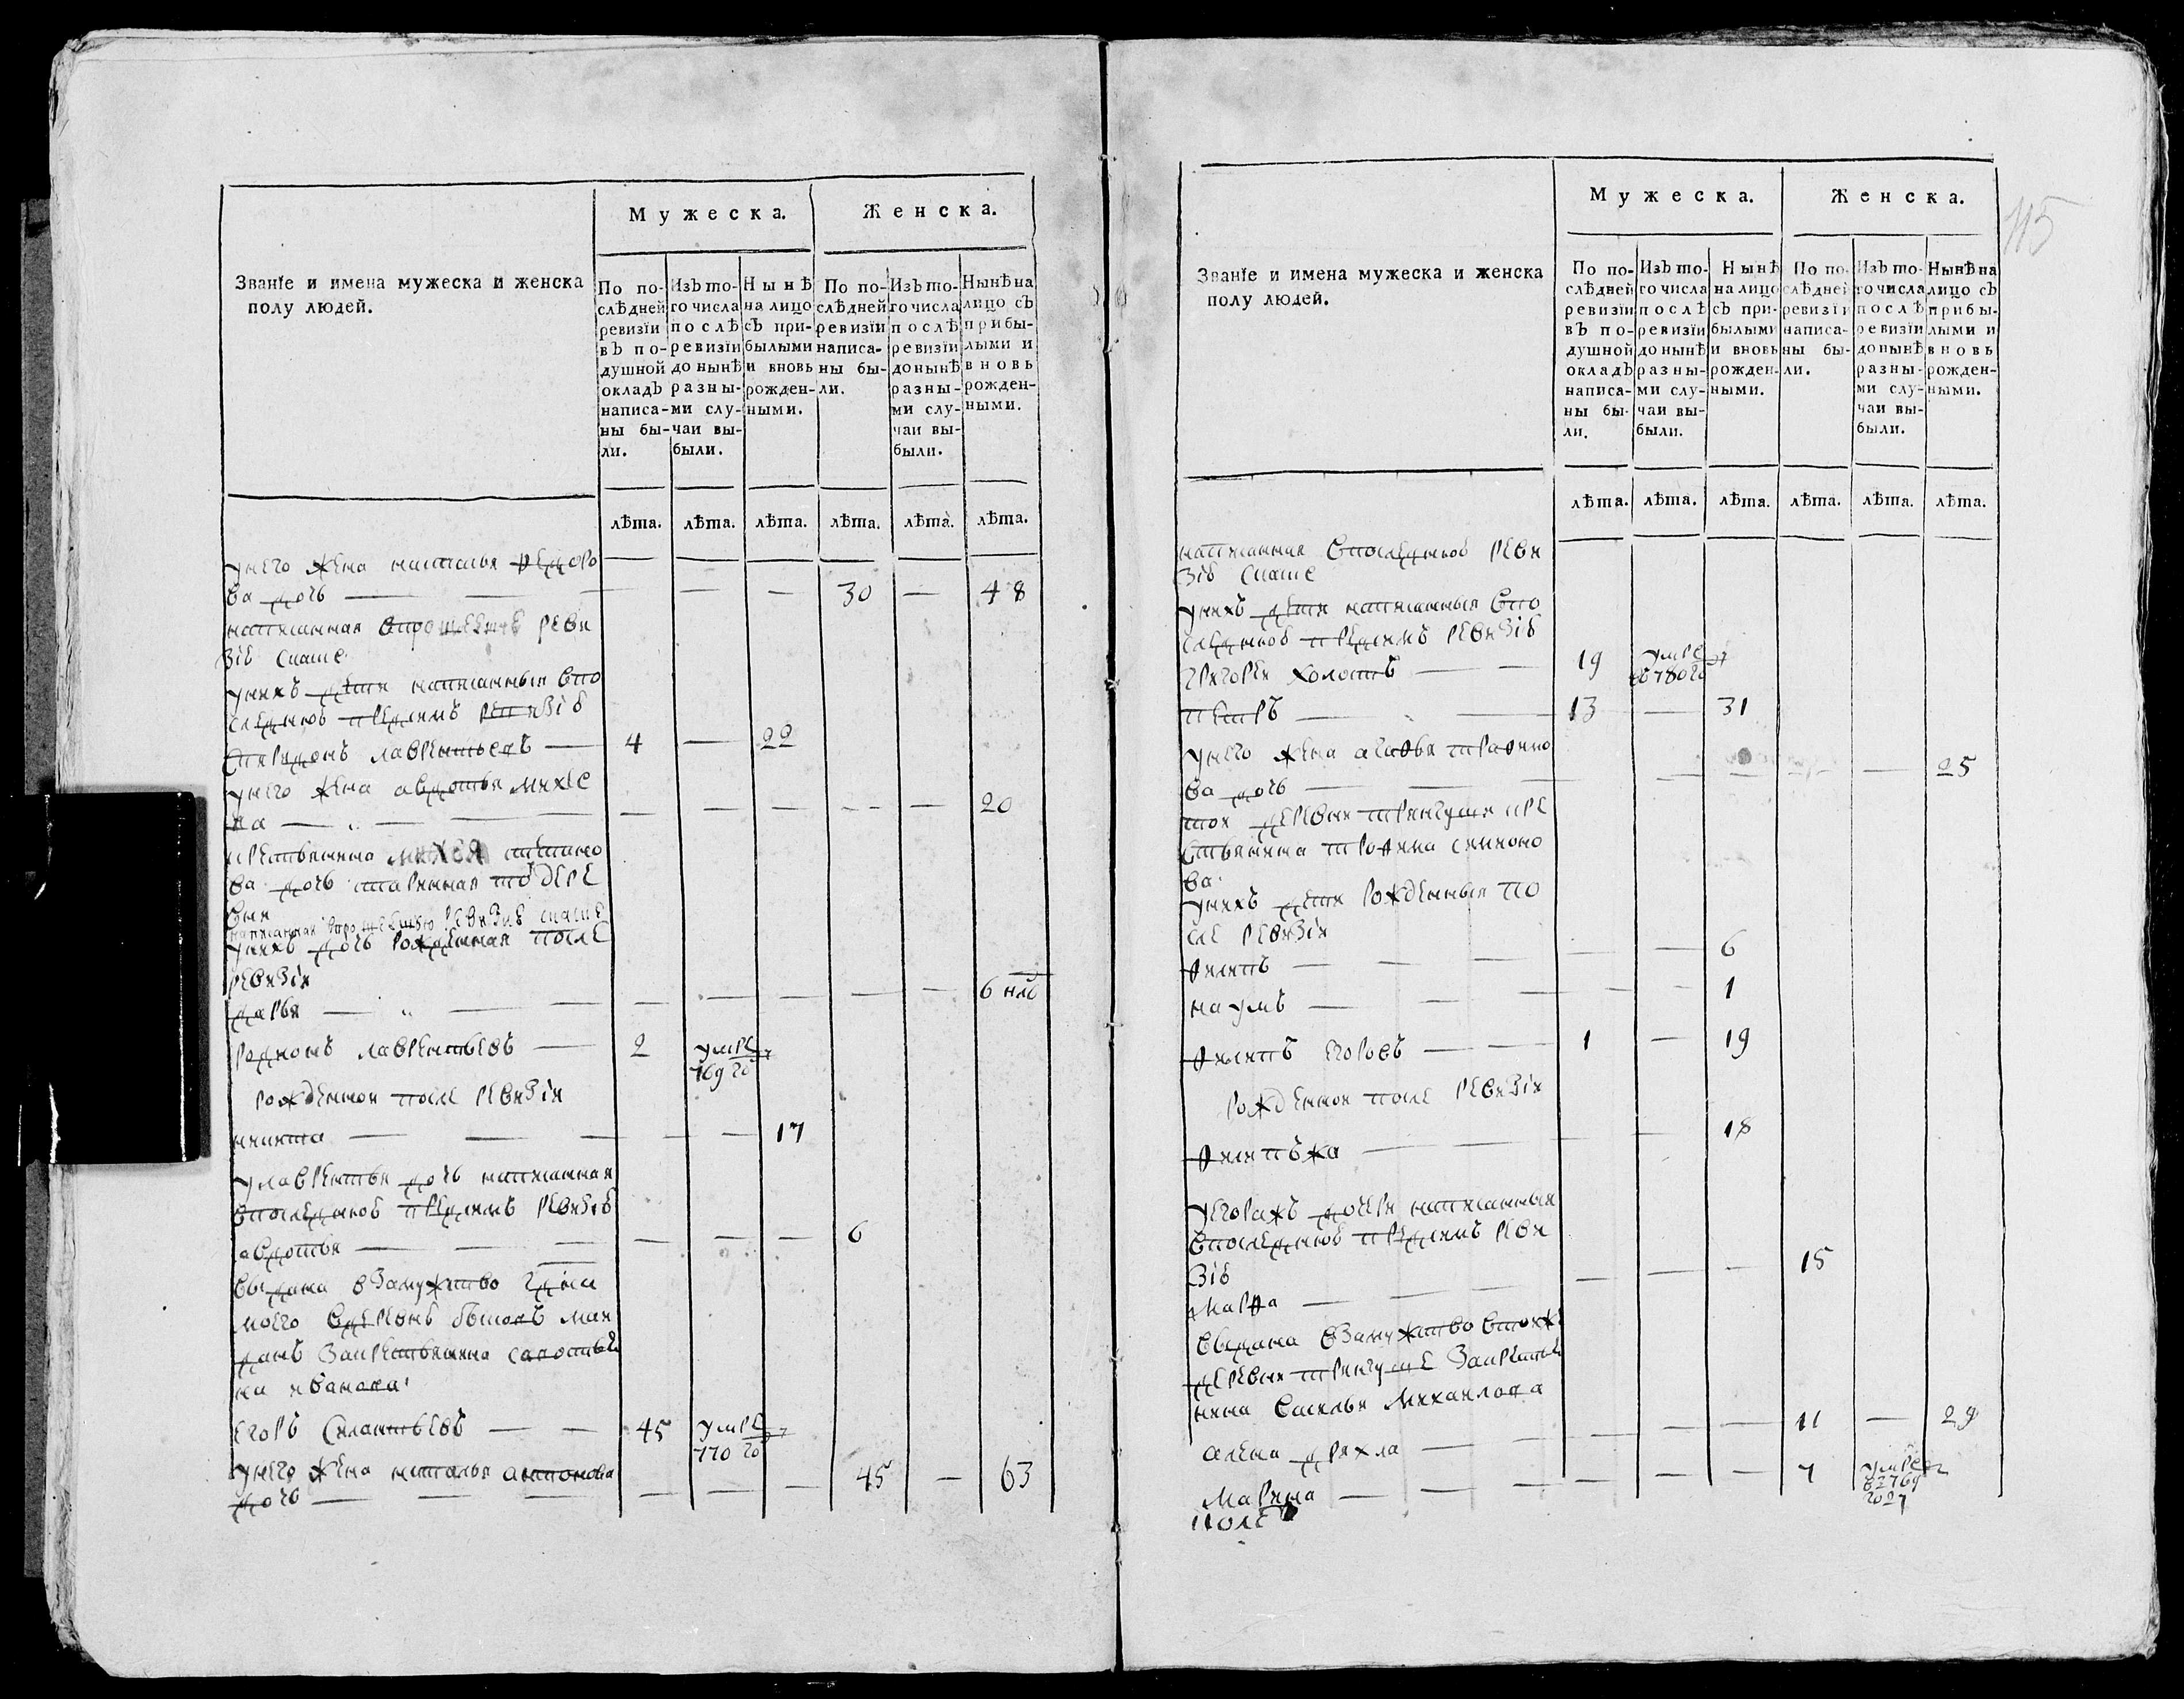 Мужеска. Женска.
Званїе и имена мужеска и женска
полу людей.
По по-
слѣдней
ревизїи
въ по-
душной
окладъ
написа-
ны бы-
ли.
Изъ то-
го числа
послѣ
ревизїи
до нынѣ
разны-
ми слу-
чаи вы-
были.
Нынѣ
на лицо
съ при-
былыми
и вновь
рожден-
ными.
По по-
слѣдней
ревизїи
написа-
ны бы-
ли.
Изъ то-
го числа
послѣ
ревизїи
до нынѣ
разны-
ми слу-
чаи вы-
были.
Нынѣ на
лицо съ
прибы-
лыми и
вновь
рожден-
ными.
лѣта. лѣта. лѣта. лѣта. лѣта. лѣта.
у него жена наталья федоро
ва дочь — — — 30 — 48
написанная в прошедшей реви
зіѣ с наше
у нихъ дети написанныя в по
следнюѣ предсимъ ревизіѣ
спиридонъ лаврентьевъ — 4 — 22
у него жена авдотья михе
ва — — — — — — 20
крестьянина михея
ва дочь старинная то дере
вни
написанная в прошедшую ревизиѣ с наше
у нихъ дочь рожденная после
ревизіи
дарья — — — — — — 6 нѣ
родионъ лаврентьевъ — 2 умре
769 го
рожденной после ревизіи
никита — — — — 17
у лаврентья дочь написанная
в последнюѣ предсимъ ревизіѣ
авдотья — — — — — 6
выдана в замужство гдна
моего в деревнѣ маи
данъ за крестьянина
на иванова
егоръ силантьевъ — — 45 умре
770 го
у него жена наталья антонова
дочь — — — — — — 45 — 63
115
Мужеска. Женска.
Званїе и имена мужеска и женска
полу людей.
По по-
слѣдней
ревизїи
въ по-
душной
окладъ
написа-
ны бы-
ли.
Изъ то-
го числа
послѣ
ревизїи
до нынѣ
разны-
ми слу-
чаи вы-
были.
Нынѣ
на лицо
съ при-
былыми
и вновь
рожден-
ными.
По по-
слѣдней
ревизїи
написа-
ны бы-
ли.
Изъ то-
го числа
послѣ
ревизїи
до нынѣ
разны-
ми слу-
чаи вы-
были.
Нынѣ на
лицо съ
прибы-
лыми и
вновь
рожден-
ными.
лѣта. лѣта. лѣта. лѣта. лѣта. лѣта.
написанная в последнюѣ реви
зіѣ с наше
у нихъ дети написанныя в по
следнюѣ предсимъ ревизіѣ
григореи холостъ — — 19 умре
в 780 го
петръ — — 13 — 31
у него жена агафья трафимо
ва дочь — — — — — — 25
тои деревни трянгуши кре
стьянина трофима симоно
ва
у нихъ дети рожденныя по
сле ревизіи
филипъ — — — — — 6
наумъ — — — — 1
филипъ егоровъ — — 1 — 19
рожденнои после ревизіи
филипъ жа — — — 18
у егора жъ дочери написанныя
в последнюѣ предсимъ реви
зіѣ
марфа — — — — — — 15
выдана в замужство в тои ж
деревни трянгуше за крестья
нина василья михаилова
алена дряхла — — — — 11 — 29
марина — — — — — — 7 умре
в 769
го